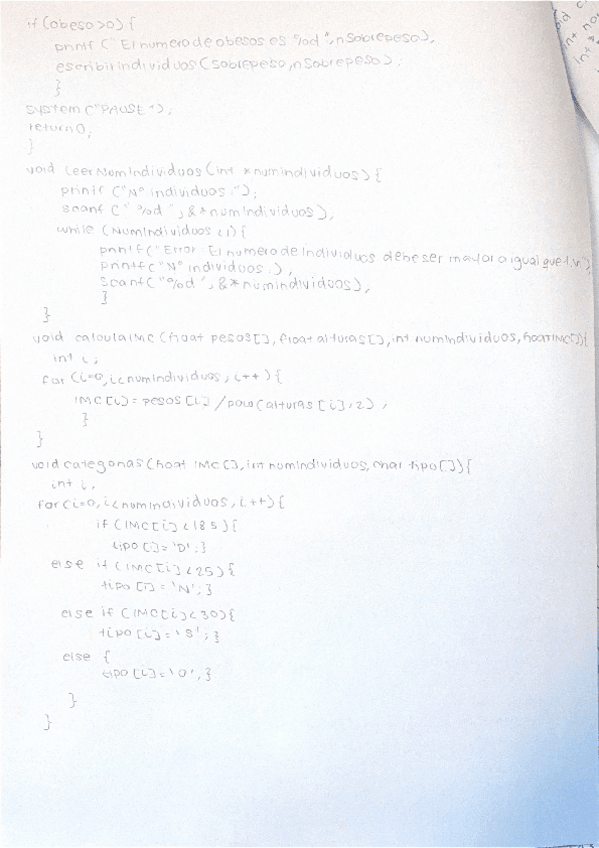 if (obeso >0) {
printf ("El numero de obesos es %d", nSobrepeso);
escribirindividuos (sobrepeso, nSobrepeso);
}
System ("PAUSE");
return 0;
}
void LeerNumIndividuos (int *numindividuos) {
printf ("Nº individuos:");
scanf (" %d ", &*numIndividuos);
while (NumIndividuos <1) {
printf ("Error: El numero de individuos debe ser mayor o igual que 1.\n");
printf ("Nº individuos:");
scanf ("%d", &*numIndividuos);
}
}
void calculaIMC (float pesos[], float alturas[], int numIndividuos, float IMC[]) {
int i;
for (i=0, i<numIndividuos, i++) {
IMC[i] = pesos[i] / pow(alturas[i],2);
}
}
void categorias (float IMC[], int numIndividuos, char tipo[]) {
int i;
for (i=0, i<numIndividuos, i++) {
if (IMC[i] <18.5) {
tipo[i]='D';}
else if (IMC[i] <25) {
tipo[i]='N';}
else if (IMC[i] <30) {
tipo[i]='S';}
else {
tipo[i]='O';}
}
}